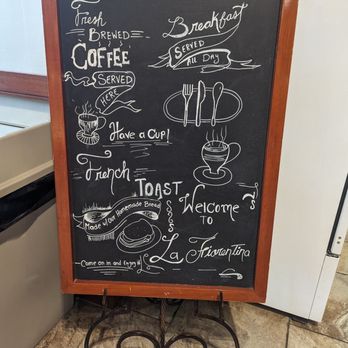 Fresh
BREWED
COFFEE
SERVED
HERE
Have a Cup!
French
TOAST
Made w/ Our Homemade Bread
Come on in and Enjoy it!
Breakfast
SERVED
All Day
Welcome
TO
La Fiorentina